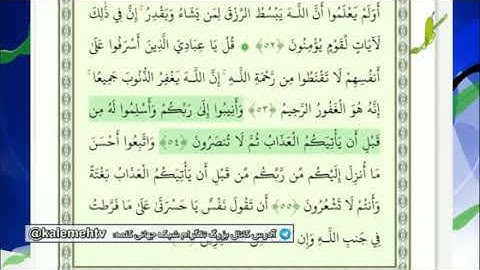 أَوَلَمْ يَعْلَمُوا أَنَّ اللَّـهَ يَبْسُطُ الرِّزْقَ لِمَن يَشَاءُ وَيَقْدِرُ ۚ إِنَّ فِي ذَٰلِكَ
لَآيَاتٍ لِّقَوْمٍ يُؤْمِنُونَ ﴿٥٢﴾ قُلْ يَا عِبَادِيَ الَّذِينَ أَسْرَفُوا عَلَىٰ
أَنفُسِهِمْ لَا تَقْنَطُوا مِن رَّحْمَةِ اللَّـهِ ۚ إِنَّ اللَّـهَ يَغْفِرُ الذُّنُوبَ جَمِيعًا ۚ
إِنَّهُ هُوَ الْغَفُورُ الرَّحِيمُ ﴿٥٣﴾ وَأَنِيبُوا إِلَىٰ رَبِّكُمْ وَأَسْلِمُوا لَهُ مِن
قَبْلِ أَن يَأْتِيَكُمُ الْعَذَابُ ثُمَّ لَا تُنصَرُونَ ﴿٥٤﴾ وَاتَّبِعُوا أَحْسَنَ
مَا أُنزِلَ إِلَيْكُم مِّن رَّبِّكُم مِّن قَبْلِ أَن يَأْتِيَكُمُ الْعَذَابُ بَغْتَةً
وَأَنتُمْ لَا تَشْعُرُونَ ﴿٥٥﴾ أَن تَقُولَ نَفْسٌ يَا حَسْرَتَىٰ عَلَىٰ مَا فَرَّطتُ
آدرس کانال بزرگ تلگرام شبکه جهانی کلمه: @kalemehtv
فِي جَنبِ اللَّـهِ وَإِن